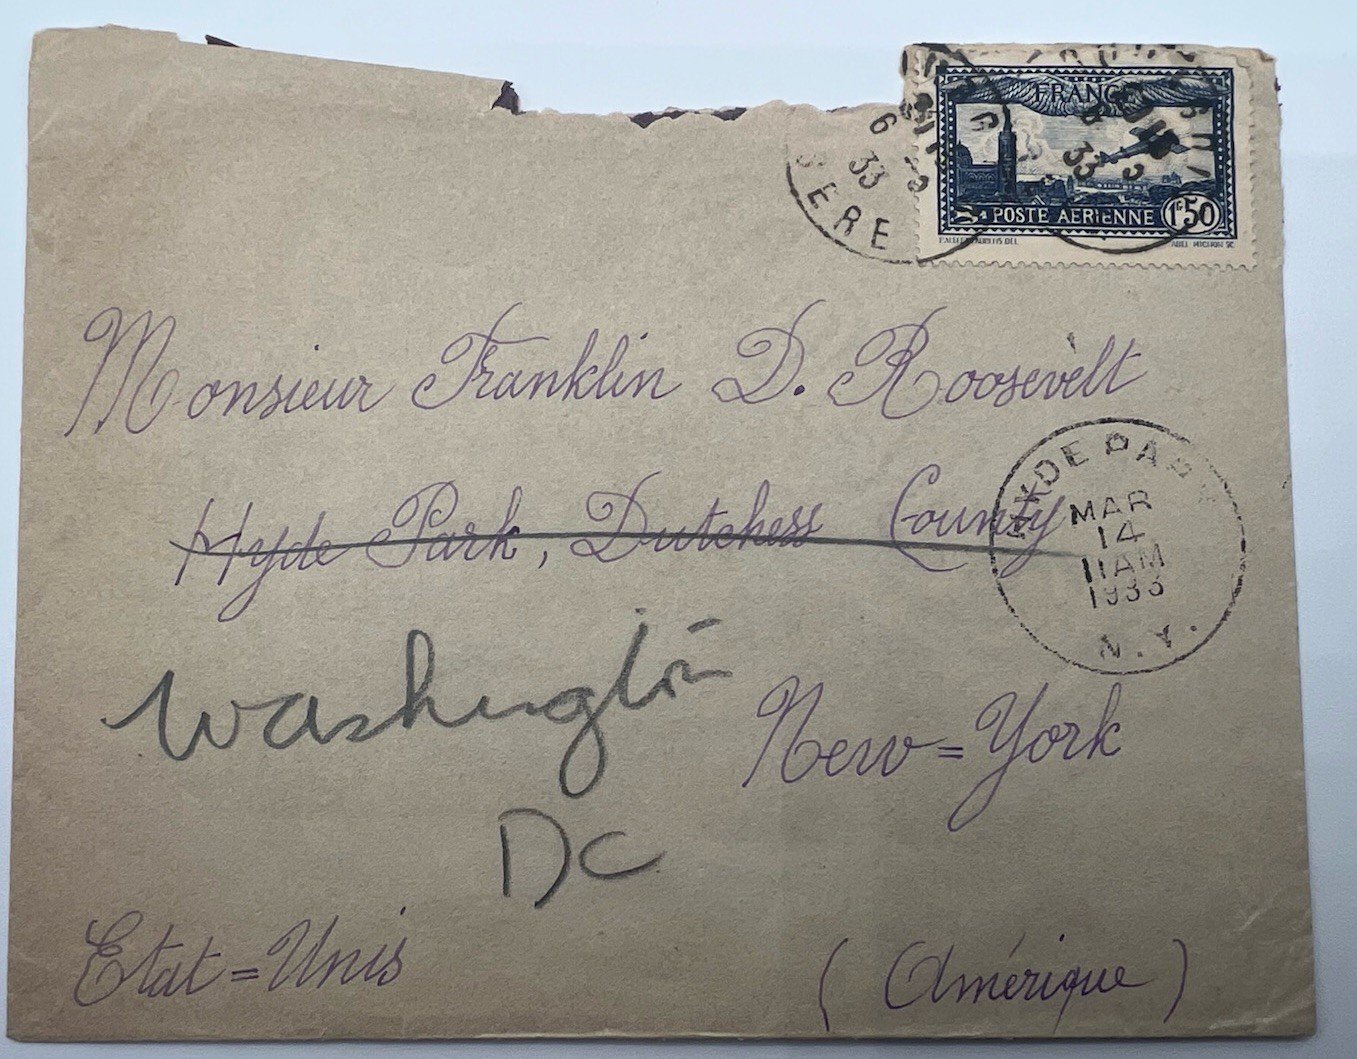 FRANCE
POSTE AÉRIENNE 1F50
ABEL MIGNON SC.
6
33
ISERE
33
Monsieur Franklin D. Roosevelt
Hyde Park, Dutchess County
HYDE PARK
MAR
14
11 AM
1933
N.Y.
Washington
DC
New=York
Etat=Unis
(Amérique)